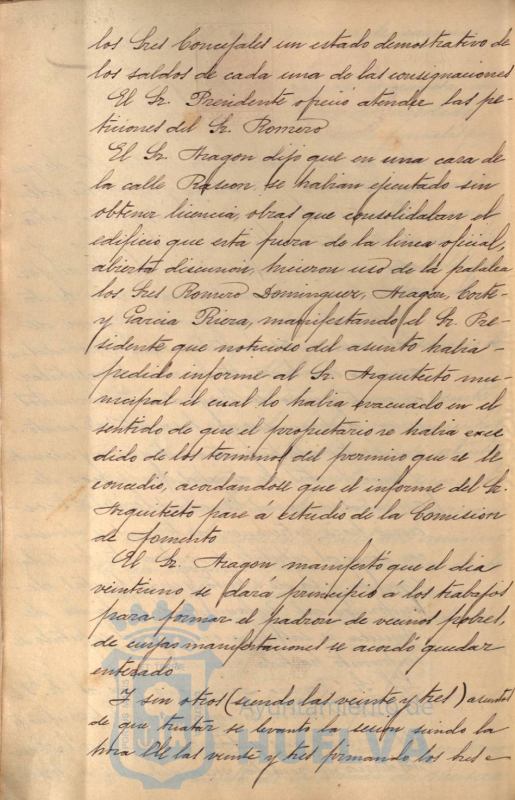 los Sres Concejales un estado demostrativo de
los saldos de cada una de las consignaciones
El Sr. Presidente ofreció atender las pe-
ticiones del Sr. Romero
El Sr. Aragon dijo que en una casa de
la calle Rascon se habian ejecutado sin
obtener licencia, obras que consolidaban el
edificio que esta fuera de la linea oficial,
abierta discusion, hicieron uso de la palabra
los Sres Romero Dominguez, Aragon, Corte-
y Garcia Riera, manifestando el Sr. Pre-
sidente que noticioso del asunto habia
pedido informe al Sr. Arquitecto mu-
nicipal el cual lo habia evacuado en el
sentido de que el propietario se habia exce
dido de los terminos del permiso que se le
concedió, acordandose que el informe del Sr.
Arquitecto pase á estudio de la Comision
de fomento
El Sr. Aragon manifestó que el dia
veintiuno se dará principio á los trabajos
para formar el padron de vecinos pobres,
de cuyas manifestaciones se acordó quedar
enterado
Y sin otros (siendo las veinte y tres) asuntos
de que tratar se levantó la sesion siendo la
hora de las veinte y tres firmando los Sres
Ayuntamiento de
HUELVA